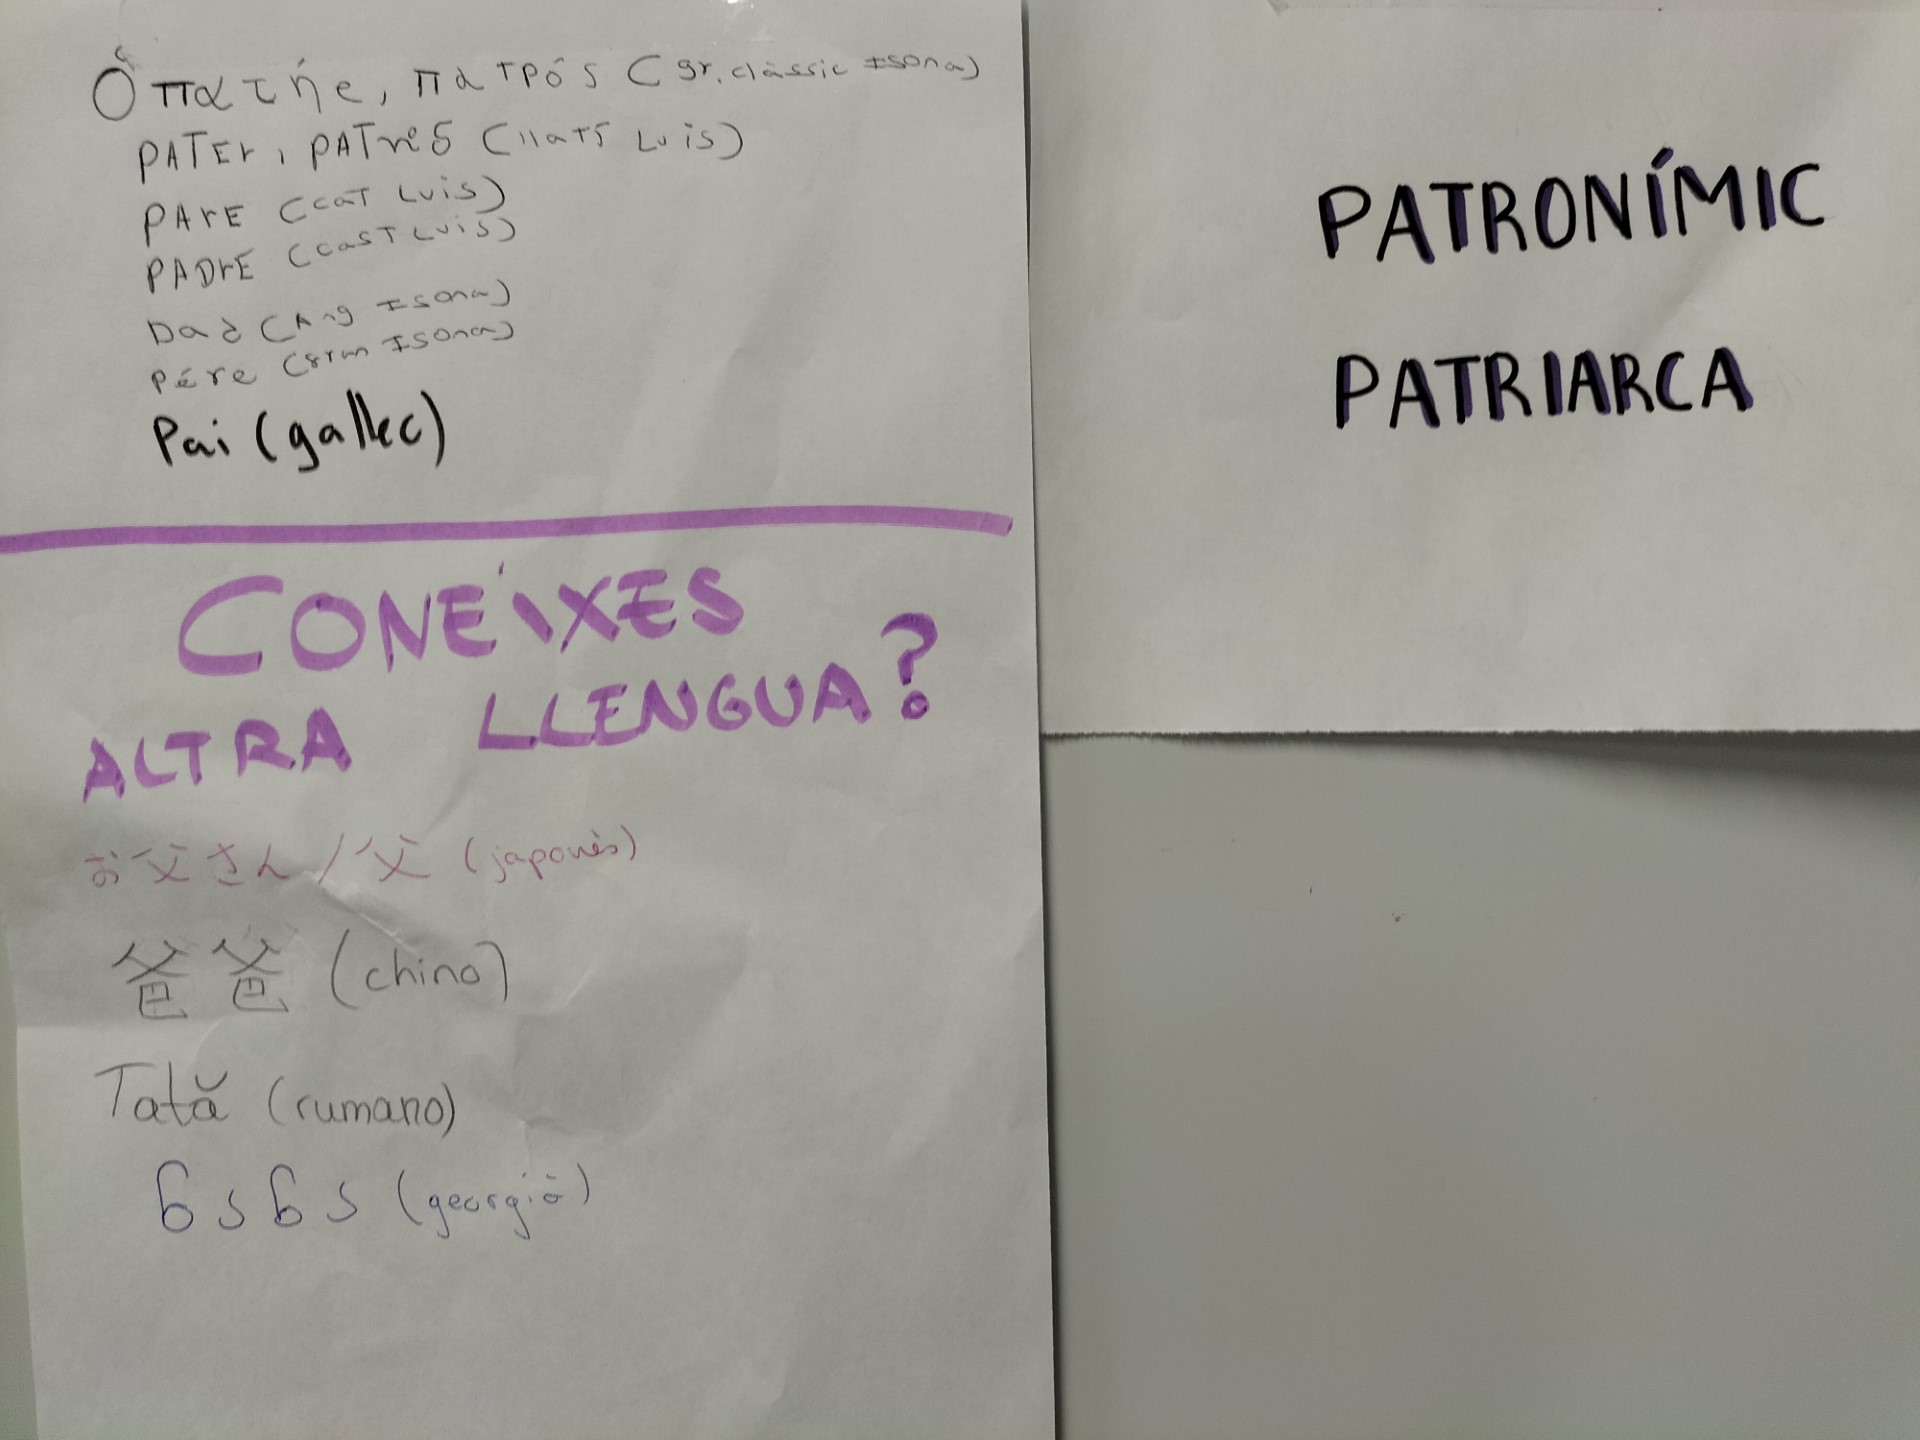 Ὁ πατήρ, πατρός (gr. clàssic Isona)
PATEr, PATris (llatí Luis)
PArE (cat Luis)
PADrE (cast Luis)
Dad (Ang Isona)
Pére (Isona)
Pai (gallec)
CONEIXES
ALTRA LLENGUA?
お父さん/父 (japonès)
爸爸 (chino)
Tată (rumano)
მამა (georgià)
PATRONÍMIC
PATRIARCA